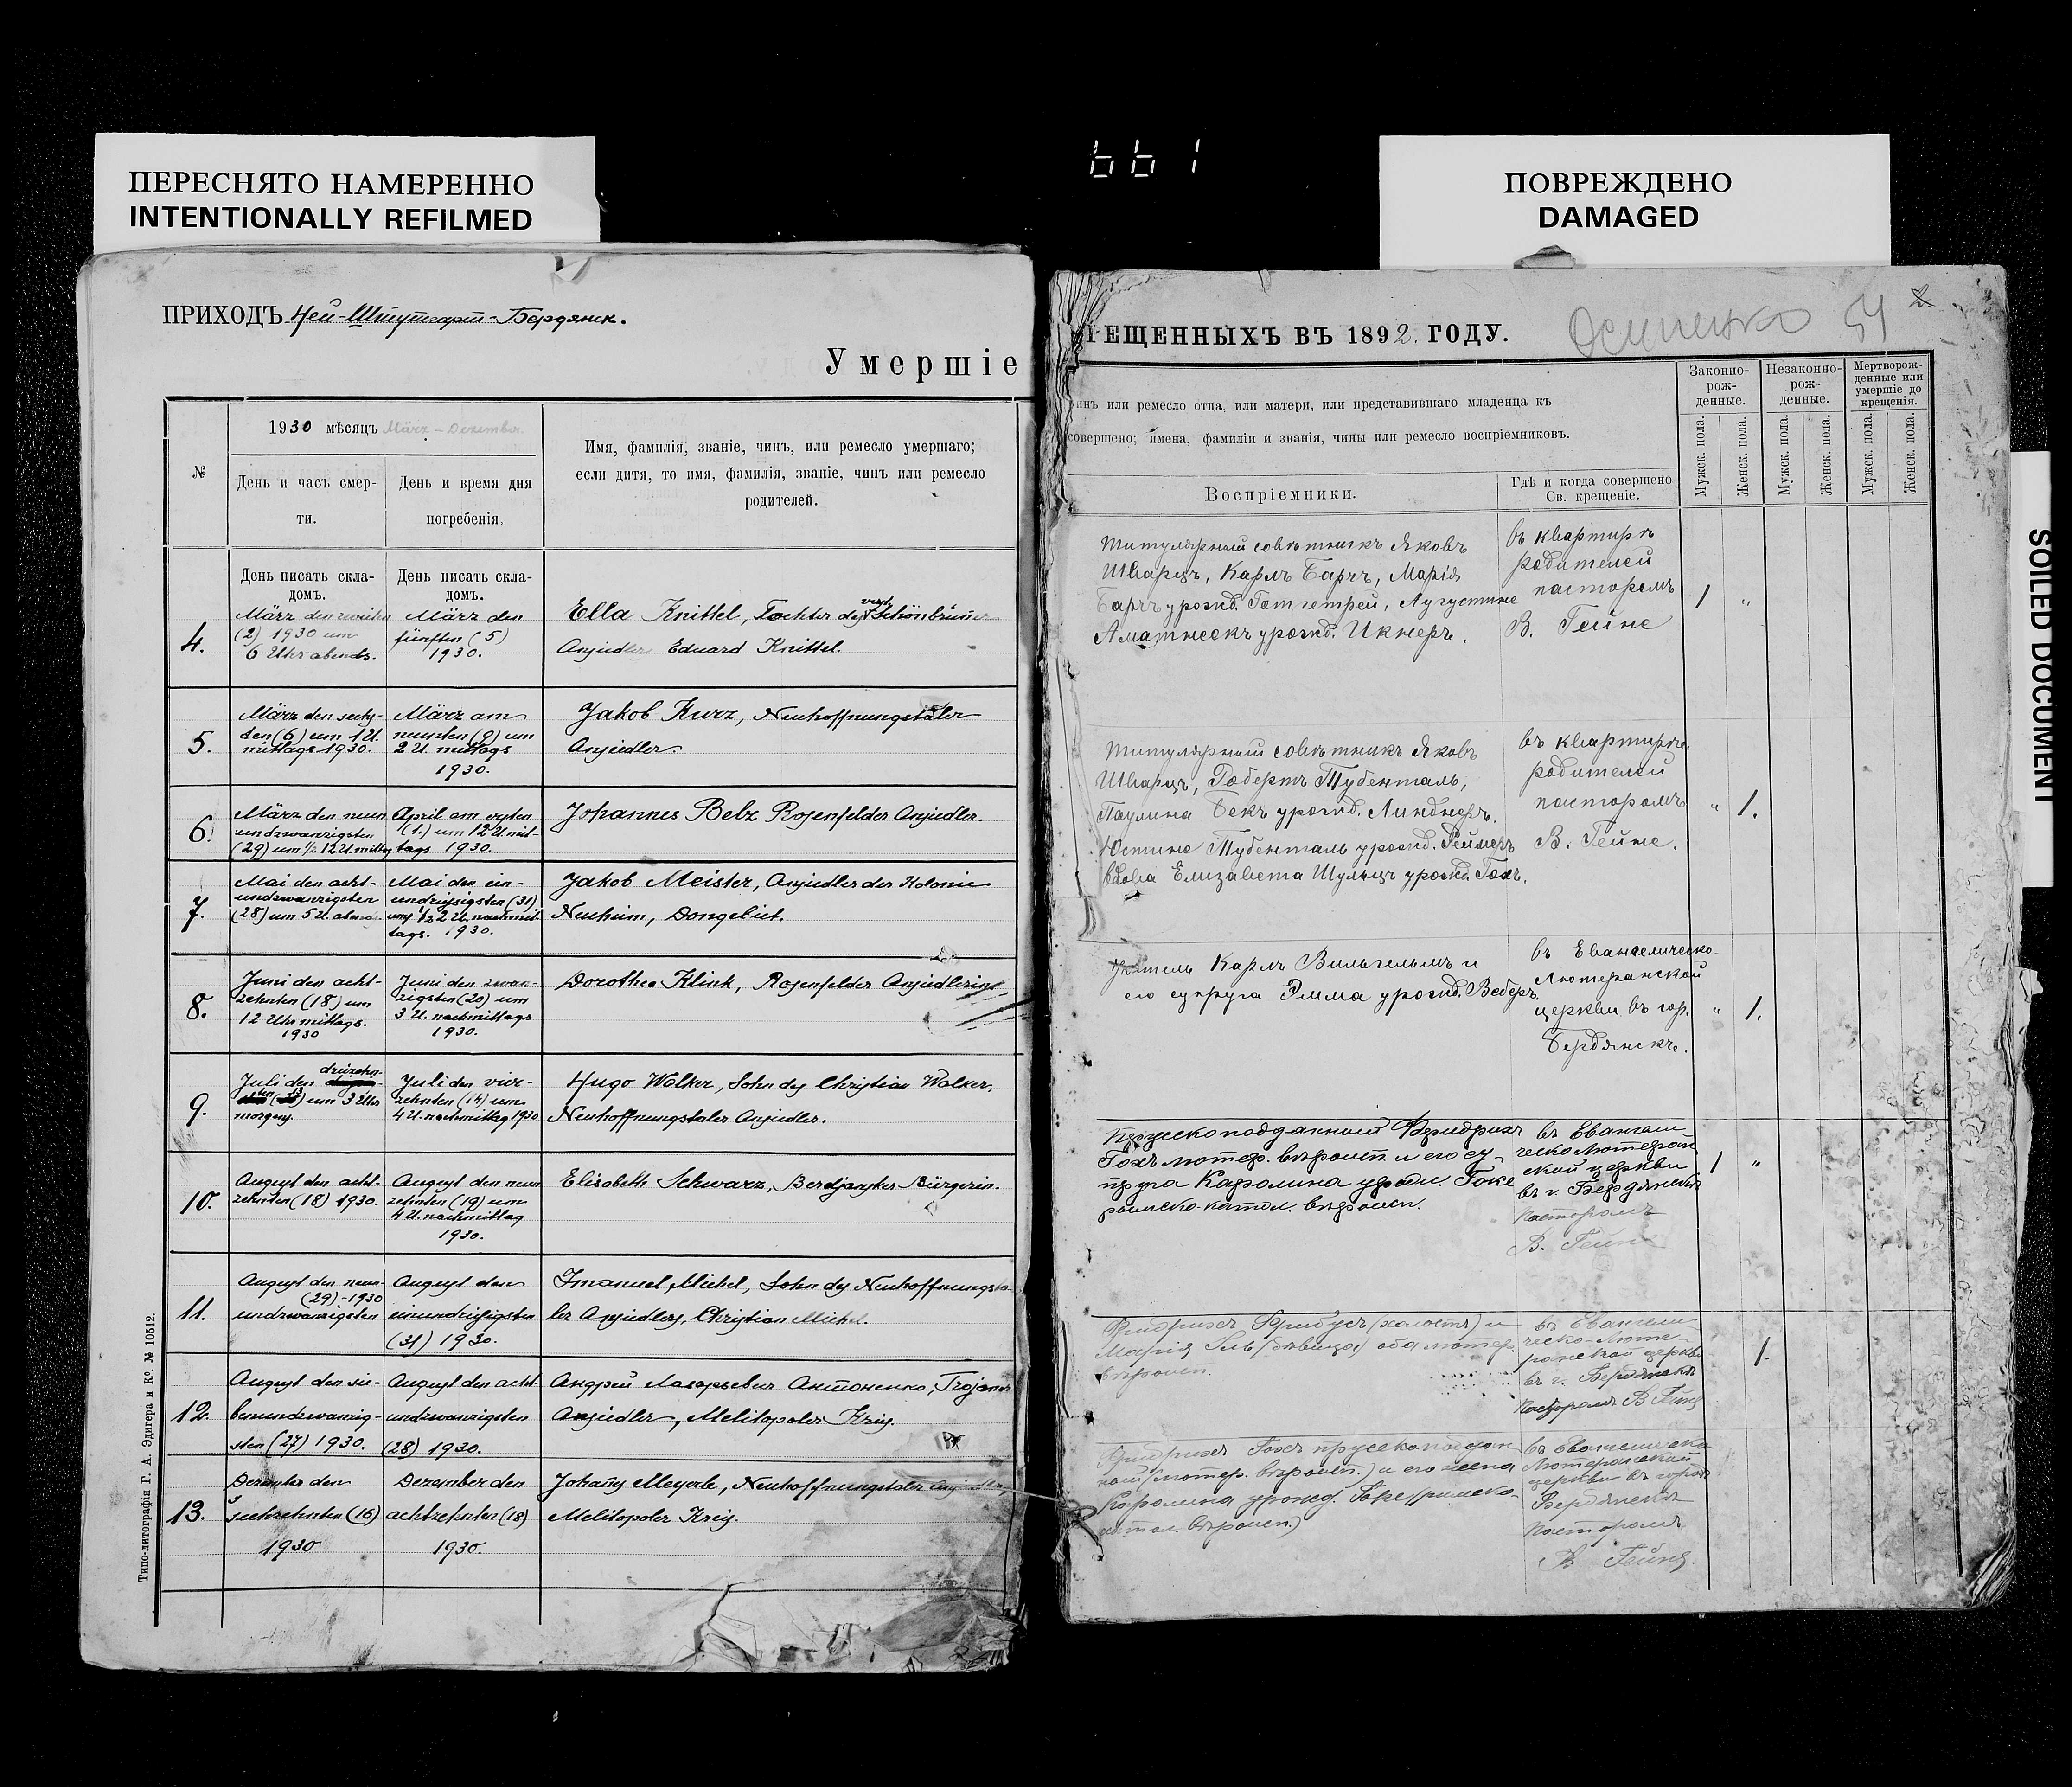 ПЕРЕСНЯТО НАМЕРЕННО
INTENTIONALLY REFILMED
661
ПОВРЕЖДЕНО
DAMAGED
SOILED DOCUMENT
ПРИХОДЪ Ней-Штутгарт-Бердянск.
Умершіе
№
1930 мѣсяцъ März - Dezember.
День и часъ смер-
ти.
День и время дня
погребенія.
Имя, фамилія, званіе, чинъ, или ремесло умершаго;
если дитя, то имя, фамилія, званіе, чинъ или ремесло
родителей.
День писать скла-
домъ.
День писать скла-
домъ.
4.
März den zweiten
(2) 1930 um
6 Uhr abends.
März den
fünften (5)
1930.
Ella Knittel, Tochter des verst. Schönbrunner
Ansiedler Eduard Knittel.
5.
März den sechs-
ten (6) um 1 U.
mittags 1930.
März am
neunten (9) um
2 U. mittags
1930.
Jakob Kurz, Neuhoffnungstaler
Ansiedler.
6.
März den neun
undzwanzigsten
(29) um ½ 12 U. mittag
April am ersten
(1.) um 12 U. mit-
tags 1930.
Johannes Belz Rosenfelder Ansiedler.
7.
Mai den acht-
undzwanzigsten
(28) um 5 U. abend
Mai den ein-
unddreissigsten (31)
um ½ 2 U. nachmit-
tags. 1930.
Jakob Meister, Ansiedler der Kolonie
Neuheim, Dongebiet.
8.
Juni den acht-
zehnten (18) um
12 Uhr mittags.
1930
Juni den zwan-
zigsten (20) um
3 U. nachmittags
1930.
Dorothea Klink, Rosenfelder Ansiedlerin
9.
Juli den dreizehn-
ten (13) um 3 Uhr
morgens.
Juli den vier-
zehnten (14) um
4 U. nachmittag 1930
Hugo Walker, Sohn des Christian Walker,
Neuhoffnungstaler Ansiedler.
10.
August den acht-
zehnten (18) 1930.
August den neun
zehnten (19) um
4 U. nachmittag
1930.
Elisabeth Schwarz, Berdjansker Bürgerin.
11.
August den neun-
(29) - 1930
undzwanzigsten
August den
einunddreissigsten
(31) 1930.
Imanuel Michel, Sohn des Neuhoffnungsta-
ler Ansiedlers, Christian Michel.
12.
August den sie-
benundzwanzig-
sten (27) 1930.
August den acht-
undzwanzigsten
(28) 1930.
Андрей Лазарьевич Антоненко, Trojaner
Ansiedler, Melitopoler Kreis.
13.
Dezember den
sechzehnten (16)
1930
Dezember den
achtzehnten (18)
1930.
Johans Meyerle, Neuhoffnungstaler Ansiedler,
Melitopoler Kreis.
Типо-литографія Г. А. Эдигера и Ко. № 10512.
РЕЩЕННЫХЪ ВЪ 1892. ГОДУ.
Осипенко 54
чинъ или ремесло отца, или матери, или представившаго младенца къ
совершено; имена, фамиліи и званія, чины или ремесло воспріемниковъ.
Воспріемники.
Гдѣ и когда совершено
Св. крещеніе.
Законно-
рож-
денные.
Незаконно-
рож-
денные.
Мертворож-
денные или
умершіе до
крещенія.
Мужск. пола.
Женск. пола.
Мужск. пола.
Женск. пола.
Мужск. пола.
Женск. пола.
Титулярный совѣтникъ Яковъ
Шварцъ, Карлъ Барчъ, Марія
Барчъ урожд. Августине
урожд. Икнеръ.
въ квартирѣ
родителей
пасторомъ
В. Гейне
1 "
Титулярный совѣтникъ Яковъ
Шварцъ, Робертъ Тубенталь,
Паулина Бекъ урожд. Линднеръ.
Юстине Тубенталь урожд. Реймеръ
вдова Елизавета Шульцъ урожд.
въ квартирѣ
родителей
пасторомъ
В. Гейне.
" 1.
Учитель Карлъ Вильгельмъ и
его супруга Эмма урожд. Веберъ.
въ Евангелическо-
Лютеранской
церкви въ гор.
Бердянскѣ.
" 1.
Прусско подданный Фридрихъ
Гохъ лютер. вѣроисп. и его су-
пруга Каролина урожд. Гоке
римско-катол. вѣроисп.
въ Евангели
ческо Лютеран
ской церкви
въ г. Бердянскѣ
Пасторомъ
В. Гейне
1 "
Фридрихъ (холостъ) и
Марія (дѣвица) оба лютер.
вѣроисп.
въ Евангели
ческо-Люте-
ранской церкви
въ г. Бердянскѣ
Пасторомъ В Гейне
1.
Фридрихъ Гохъ прусскоподдан
ный (лютер. вѣроисп.) и его жена
Каролина урожд. Гоке (римско-
катол. вѣроисп.)
въ Евангелическо
Лютеранской
церкви въ городѣ
Бердянскѣ
Пасторомъ
В. Гейне.